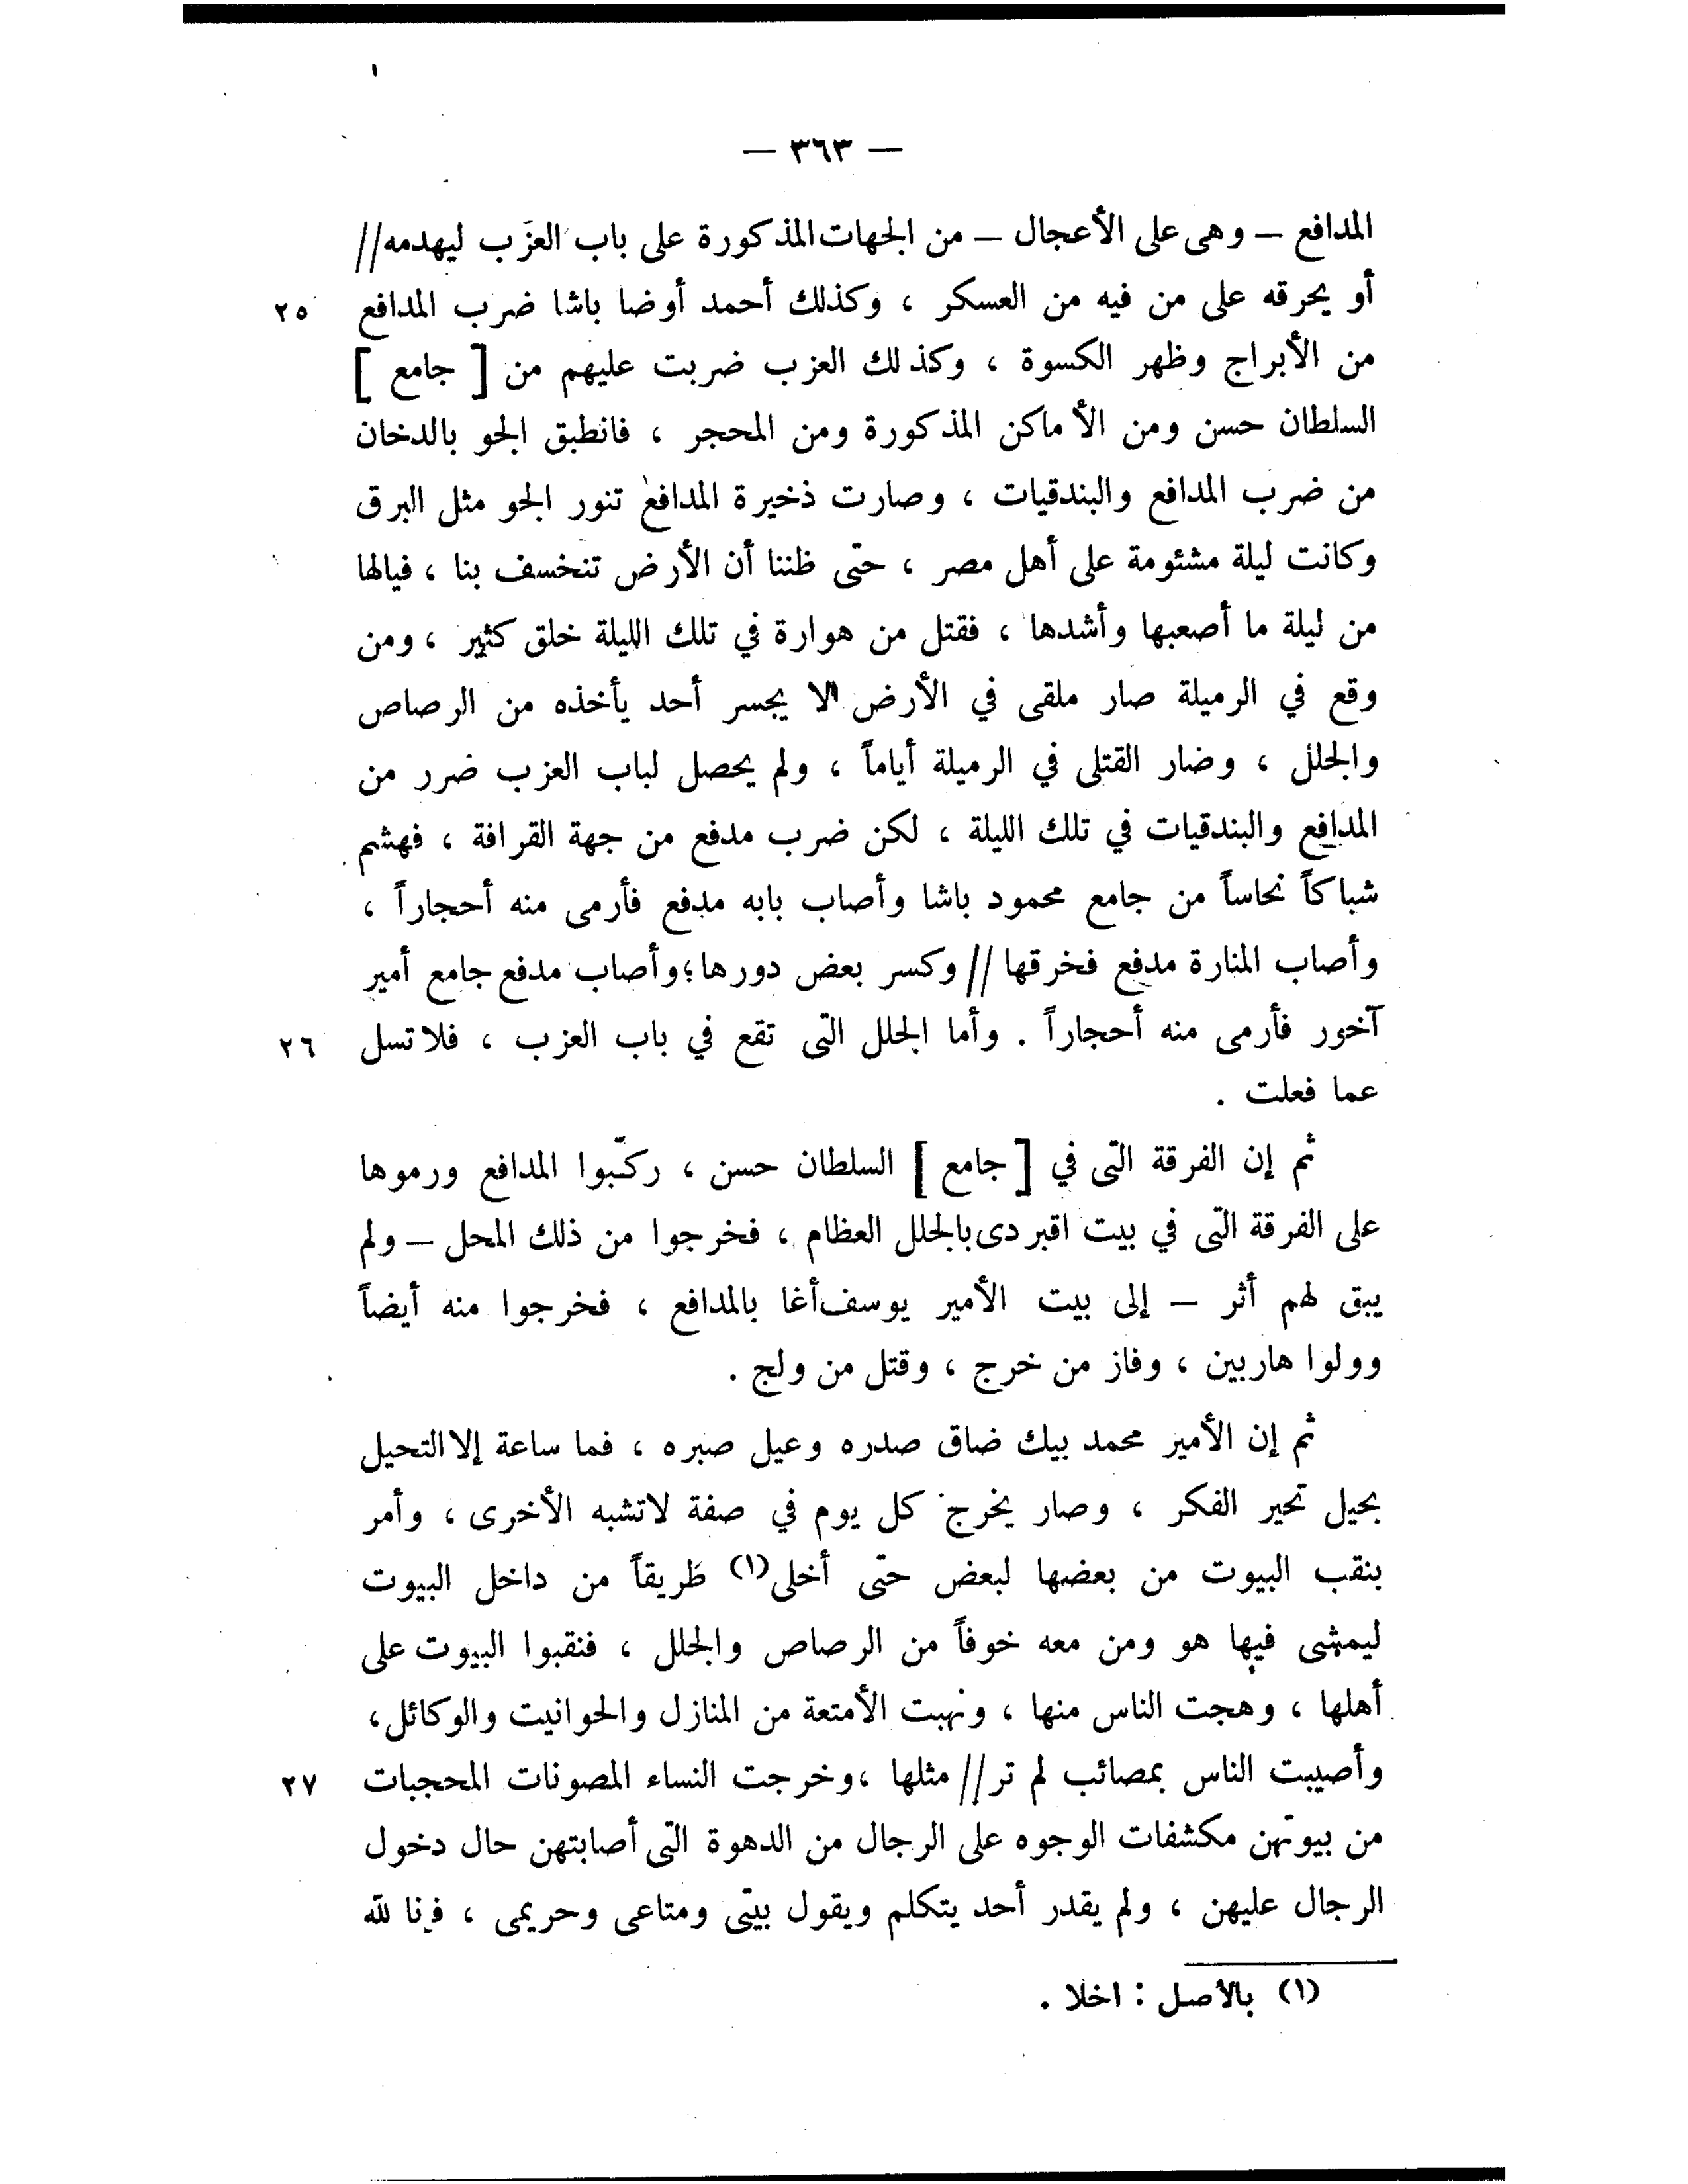 — ٣٦٣ —
المدافع — وهى على الأعجال — من الجهات المذكورة على باب العزب ليهدمه//
أو يحرقه على من فيه من العسكر ، وكذلك أحمد أوضا باشا ضرب المدافع ٢٥
من الأبراج وظهر الكسوة ، وكذلك العزب ضربت عليهم من [ جامع ]
السلطان حسن ومن الأماكن المذكورة ومن المحجر ، فانطبق الجو بالدخان
من ضرب المدافع والبندقيات ، وصارت ذخيرة المدافع تنور الجو مثل البرق
وكانت ليلة مشئومة على أهل مصر ، حتى ظننا أن الأرض تنخسف بنا ، فيالها
من ليلة ما أصعبها وأشدها ، فقتل من هوارة في تلك الليلة خلق كثير ، ومن
وقع في الرميلة صار ملقى في الأرض لا يجسر أحد يأخذه من الرصاص
والجلل ، وضار القتلى في الرميلة أياماً ، ولم يحصل لباب العزب ضرر من
المدافع والبندقيات في تلك الليلة ، لكن ضرب مدفع من جهة القرافة ، فهشم
شباكاً نحاساً من جامع محمود باشا وأصاب بابه مدفع فأرمى منه أحجاراً ،
وأصاب المنارة مدفع فخرقها // وكسر بعض دورها؛ وأصاب مدفع جامع أمير
آخور فأرمى منه أحجاراً . وأما الجلل التى تقع في باب العزب ، فلا تسل ٢٦
عما فعلت .
ثم إن الفرقة التى في [ جامع ] السلطان حسن ، ركّبوا المدافع ورموها
على الفرقة التى في بيت اقبردى بالجلل العظام ، فخرجوا من ذلك المحل — ولم
يبق لهم أثر — إلى بيت الأمير يوسف أغا بالمدافع ، فخرجوا منه أيضاً
وولوا هاربين ، وفاز من خرج ، وقتل من ولج .
ثم إن الأمير محمد بيك ضاق صدره وعيل صبره ، فما ساعة إلا التحيل
بحيل تحير الفكر ، وصار يخرج كل يوم في صفة لاتشبه الأخرى ، وأمر
بنقب البيوت من بعضها لبعض حتى أخلى(١) طريقاً من داخل البيوت
ليمشى فيها هو ومن معه خوفاً من الرصاص والجلل ، فنقبوا البيوت على
أهلها ، وهجت الناس منها ، ونهبت الأمتعة من المنازل والحوانيت والوكائل،
وأصيبت الناس بمصائب لم تر// مثلها ، وخرجت النساء المصونات المحجبات ٢٧
من بيوتهن مكشفات الوجوه على الرجال من الدهوة التى أصابتهن حال دخول
الرجال عليهن ، ولم يقدر أحد يتكلم ويقول بيتى ومتاعى وحريمى ، فإنا لله
(١) بالأصل : اخلا .